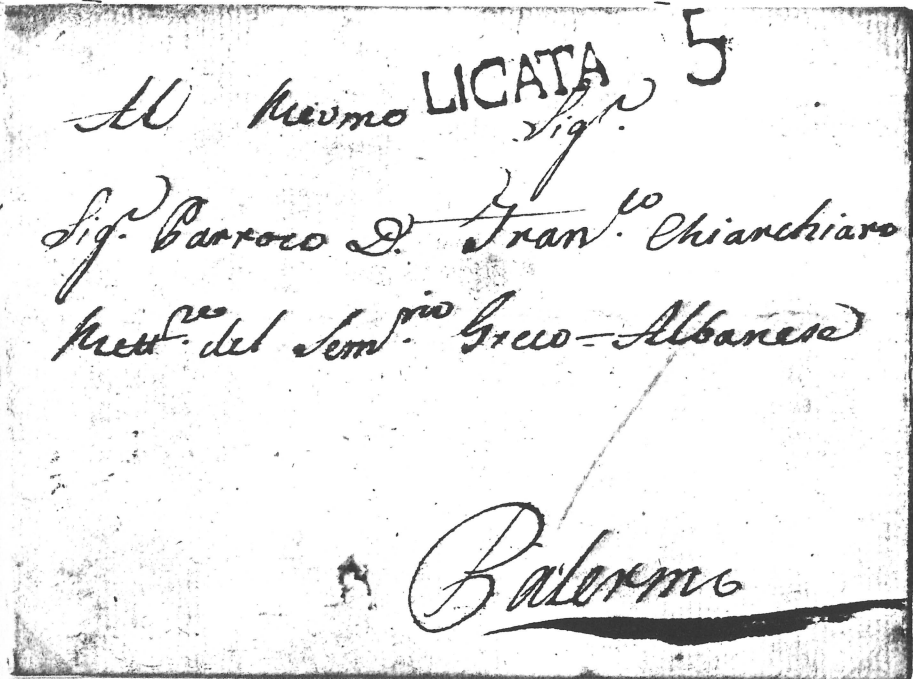 LICATA 5
Al Revmo Sigr.
Sigr. Parroco D. Fran.co Chiarchiaro
Rett.re del Sem.rio Greco=Albanese
Palermo